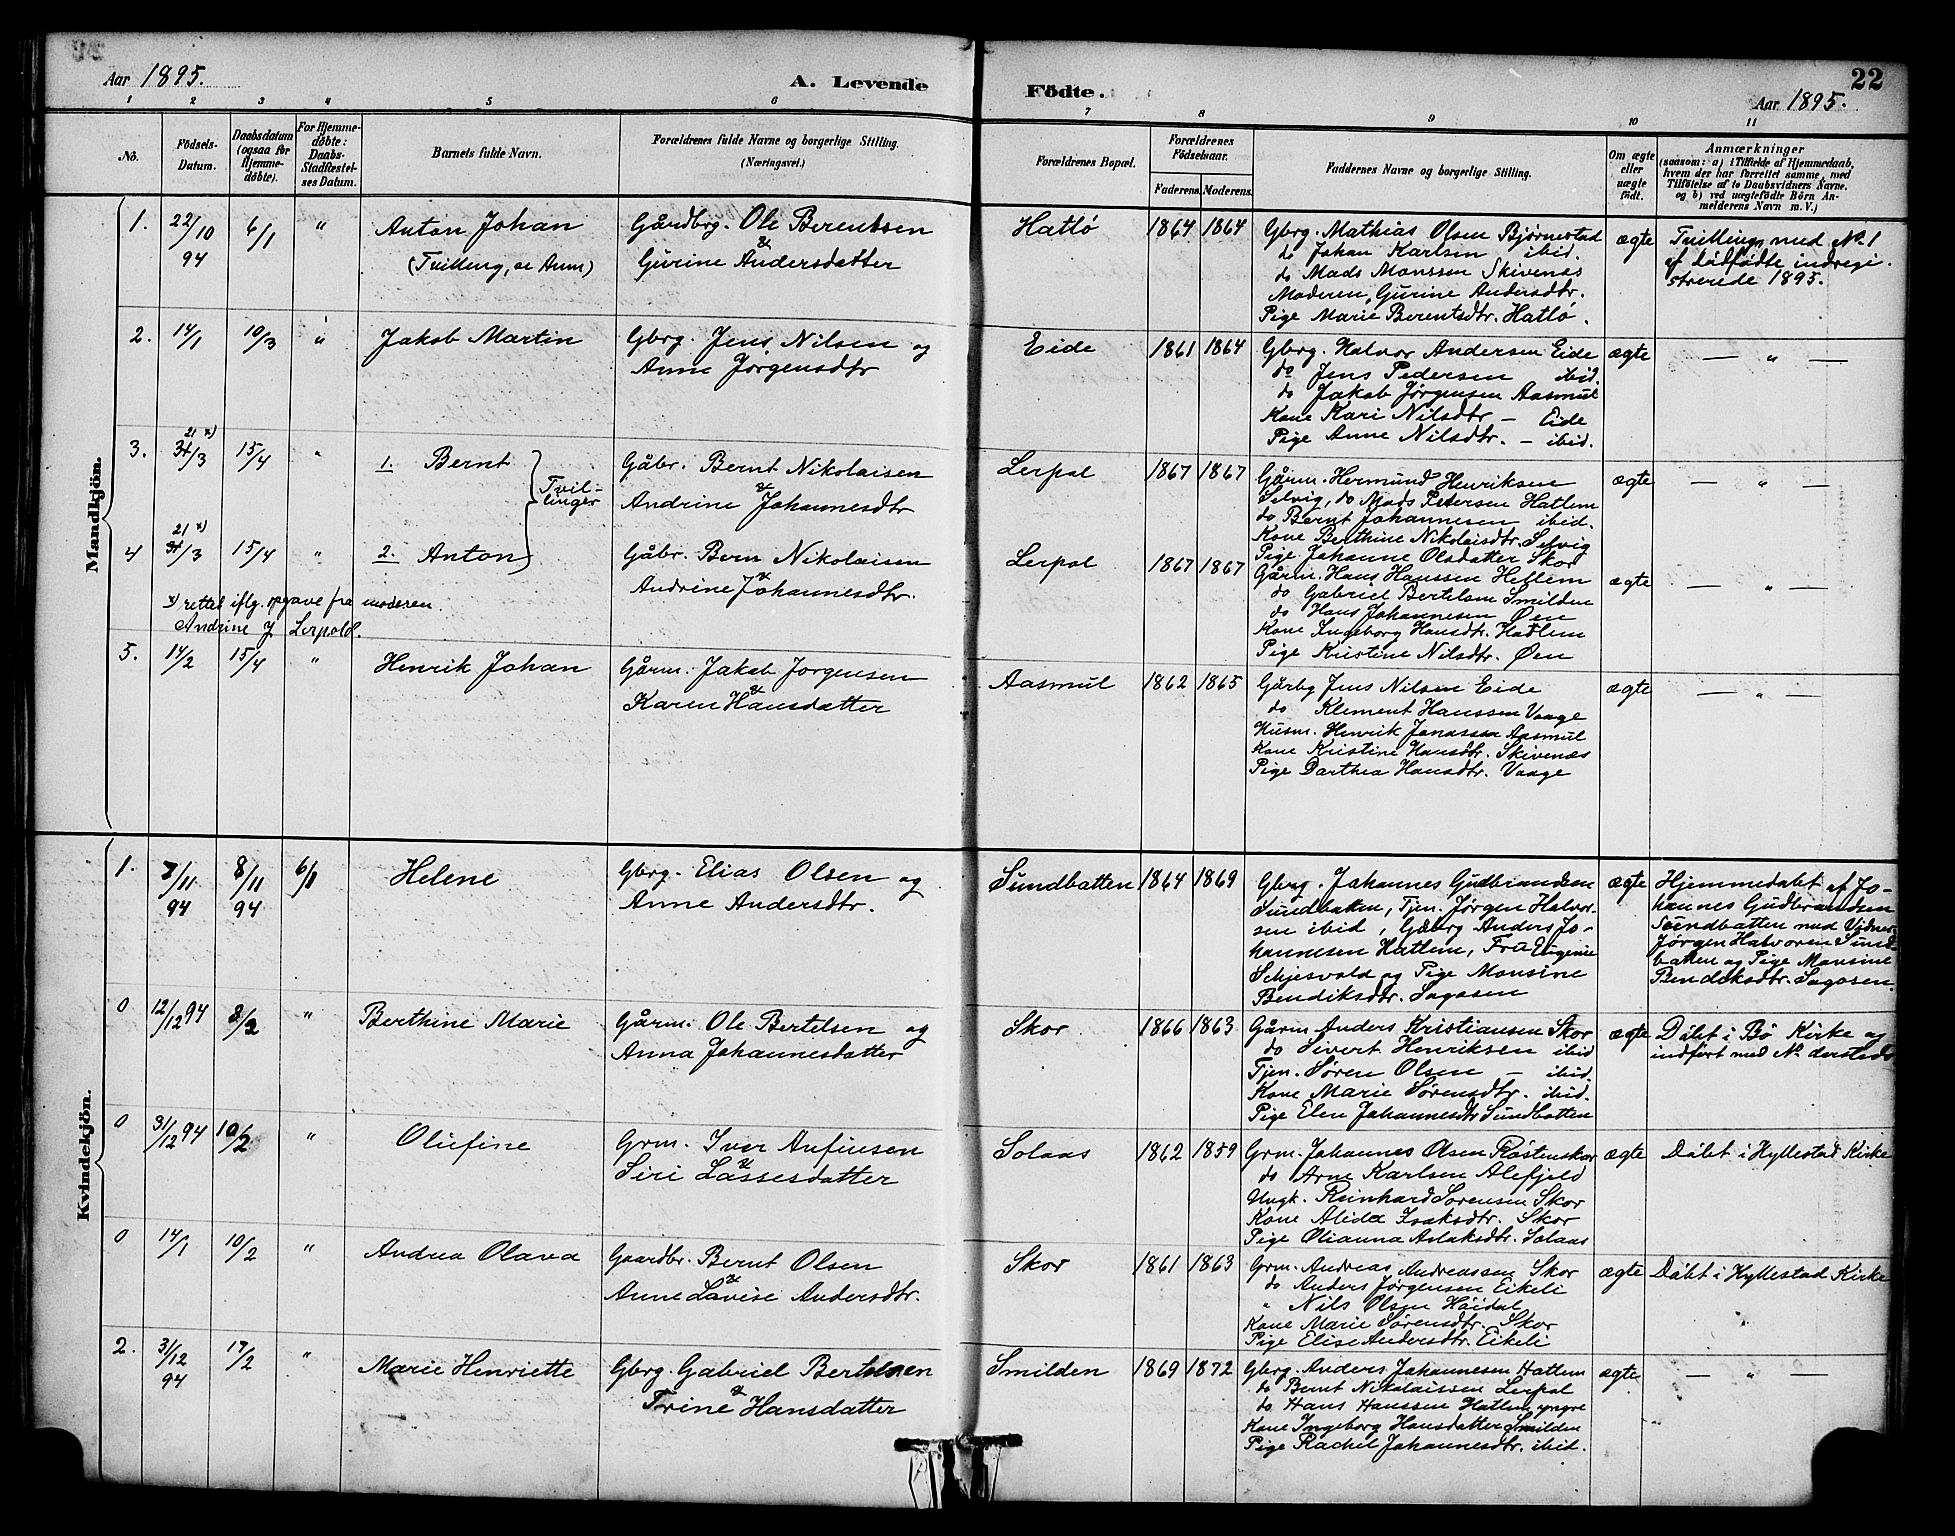 Aar 1895.
A. Levende
Födte.
22
Aar 1895.
1 2 3 4 5 6 7 8 9 10 11
No.
Födsels-
Datum.
Daabsdatum
(ogsaa for
Hjemme-
döbte).
For Hjemme-
döbte:
Daabs-
Stadfæstel-
ses Datum.
Barnets fulde Navn.
Forældrenes fulde Navne og borgerlige Stilling.
(Næringsvei.)
Forældrenes Bopæl.
Forældrenes
Födselsaar.
Faderens. Moderens.
Faddernes Navne og borgerlige Stilling.
Om ægte
eller
uægte
födt.
Anmærkninger
(saasom: a) i Tilfælde af Hjemmedaab,
hvem der har forrettet samme, med
Tilföielse af to Daabsvidners Navne.
og b) ved uægtefödte Börn An-
melderens Navn m. V.)
Mandkjön.
1. 22/10 94 6/1 " Anton Johan
(Tvilling, se Anm)
Gårdbrg. Ole Berentsen
&
Gurine Andersdatter
Hatlö 1864 1864
Gbrg. Mathias Olsen Bjørnestad
do Johan Karlsen ibid.
do Mads Monssen Skivenæs
Moderen, Gurine Andersdtr.
Pige Marie Berentsdtr. Hatlö.
ægte
Tvilling med No 1
af dödfödte indregi-
strerede 1895.
2. 14/1 10/3 " Jakob Martin
Gbrg. Jens Nilsen og
Anne Jørgensdtr
Eide 1861 1864
Gbrg. Halvor Andersen Eide
do Jens Pedersen ibid.
do Jakob Jørgensen Aasmul
Kone Kari Nilsdtr – Eide
Pige Anne Nilsdtr. – ibid.
ægte — " —
3. 21 x)
31/3 15/4 " 1. Bernt
Tvil-
linger
Gåbr. Bernt Nikolaisen
&
Andrine Johannesdtr
Lerpol 1867 1867
Gårm. Hermund Henriksen
Selvig, do Mads Petersen Hatlem
do Bernt Johannesen ibid.
Kone Berthine Nikolaisdtr. Selvig
Pige Johanne Olsdatter Skor
ægte — " —
4 21 x)
31/3 15/4 " 2. Anton
Gåbr. Bern Nikolaisen
&
Andrine Johannesdtr.
Lerpol 1867 1867
Gårm. Hans Hanssen Hellem
do Gabriel Bertelsen Smilden
do Hans Johannesen Øen
Kone Ingeborg Hansdtr. Hatlem
Pige Kristine Nilsdtr. Øen
ægte — " —
x) rettet iflg. opgave fra moderen.
Andrine J. Lerpold.
5. 14/2 15/4 " Henrik Johan
Gårm. Jakob Jorgensen
&
Karen Hansdatter
Aasmul 1862 1865
Gårbg Jens Nilsen Eide
do Klement Hanssen Vaage
Husm. Henrik Jonassen Aasmul
Kone Kristine Hansdtr. Skivenæs
Pige Darthea Hansdtr. Vaage
ægte — " —
Kvindekjön.
1. 7/11 94 8/11 94 6/1 Helene
Gbrg. Elias Olsen og
Anne Andersdtr.
Sundbatten 1864 1869
Gbrg. Johannes Gudbrandsen
Sundbatten, Tjen. Jørgen Halvor-
sen ibid, Gdbrg Anders Jo-
hannesen Hatlem, Fru Eugenie
Schjesvold og Pige Monsine
Bendiksdtr. Sagosen
ægte
Hjemmedøbt af Jo-
hannes Gudbrandsen
Sundbatten med Vidner
Jørgen Halvorsen Sund-
batten og Pige Monsine
Bendiksdtr. Sagosen.
0 12/12 94 8/2 " Berthine Marie
Gårm. Ole Bertelsen og
Anna Johannesdatter
Skor 1866 1863
Gårm Anders Kristiansen Skor
do Sivert Henriksen ibid
Tjen. Søren Olsen – ibid.
Kone Marie Sørensdtr. ibid.
Pige Elen Johannesdtr Sundbatten
ægte
Döbt i Bö Kirke og
indført med No dersteds
0 31/12 94 10/2 " Olufine
Grm. Iver Anfinsen
&
Siri Lassesdatter
Solaas 1862 1859
Grm. Johannes Olsen Råstenskar
do Arne Karlsen Alefjeld
Ungk. Reinhard Sorensen Skor
Kone Alida Isaksdtr. Skor
Pige Olianna Aslaksdtr. Solaas
ægte Döbt i Hyllestad Kirke
0 14/1 10/2 " Andrea Olava
Gaardbr. Bernt Olsen
&
Anne Lovise Andersdtr.
Skor 1861 1863
Grm. Andreas Andreassen Skor
do Anders Jørgensen Eikeli
" Nils Olsen Höidal
Kone Marie Sørensdtr. Skor
Pige Elise Andersdtr. Eikeli
ægte Döbt i Hyllestad Kirke
"
2. 31/12 94 17/2 " Marie Henriette
Gbrg. Gabriel Bertelsen
&
Trine Hansdatter
Smilden 1869 1872
Gbrg. Anders Johannesen Hatlem
do Bernt Nikolaissen Lerpol
do Hans Hanssen Hatlem, yngre
Kone Ingeborg Hansdatter Smilden
Pige Rachel Johannesdtr. ibid.
ægte — " —